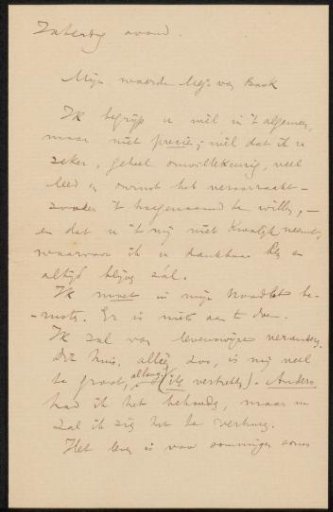 Zaterdag avond.
Mijn waarde Mej. van
Ik begrijp u wel in 't algemeen,
maar niet precies; wél dat ik u
zeker, geheel onwillekeurig, veel
leed en onrust heb veroorzaakt –
zonder 't te willen, –
en dat u 't mij niet kwalijk neemt,
waarvoor ik u dankbaar ben en
altijd blijven zal.
Ik moet in mijn
Er is niets aan te doen.
Ik zal van levenswijze veranderen.
Dit huis, alleen zoo, is mij veel
te groot, (ik vertrek). Anders
had ik het behouden, maar nu
zal ik zien het te verhuren.
Het leven is voor sommigen soms